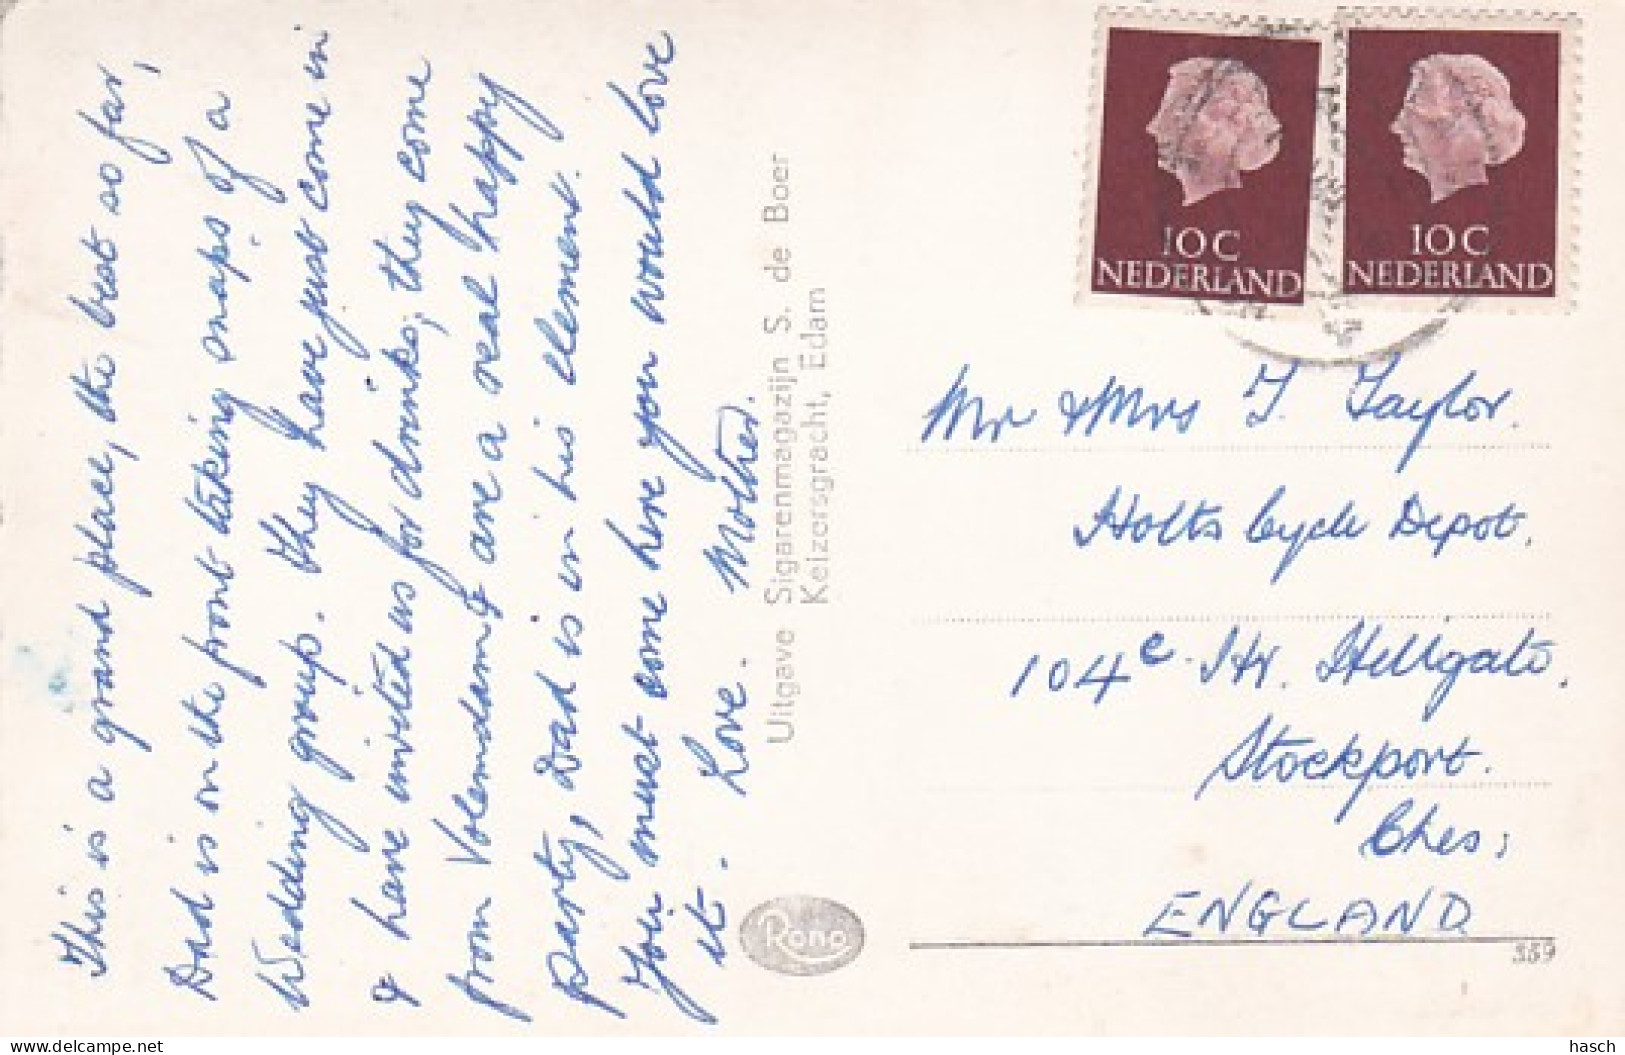 This is a grand place, the best so far,
Dad is on the front taking snaps of a
Wedding group. They have just come in
& have invited us for drinks, they come
from Volendam & are a real happy
party, Dad is in his element.
You must come here you would love
it. Love. Mother.
Uitgave Sigarenmagazijn S. de Boer
Keizersgracht, Edam
Rono
10C
NEDERLAND
10C
NEDERLAND
Mr & Mrs T. Taylor.
Holts Cycle Depot.
104e Hr. Hillgate.
Stockport.
Ches;
ENGLAND
359
hasch